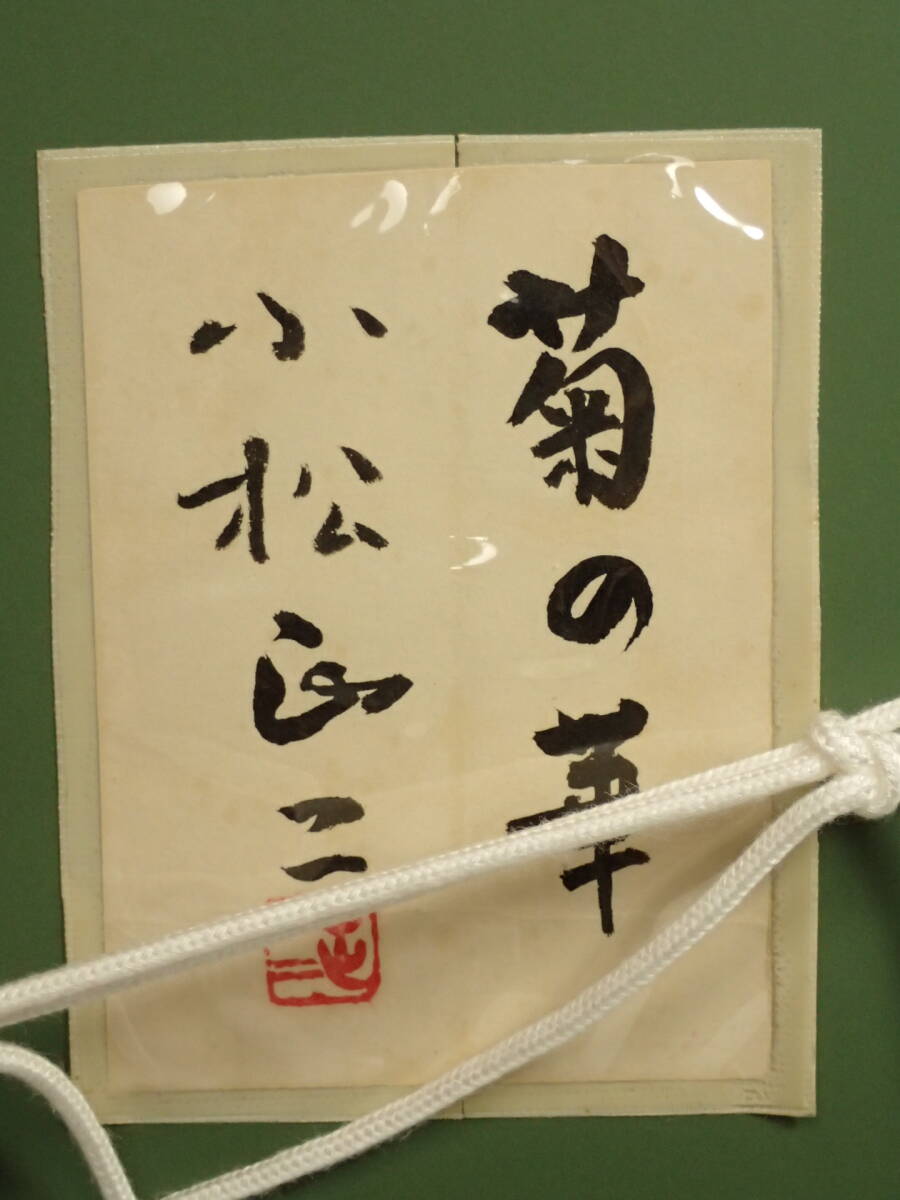 菊の華
小松正二